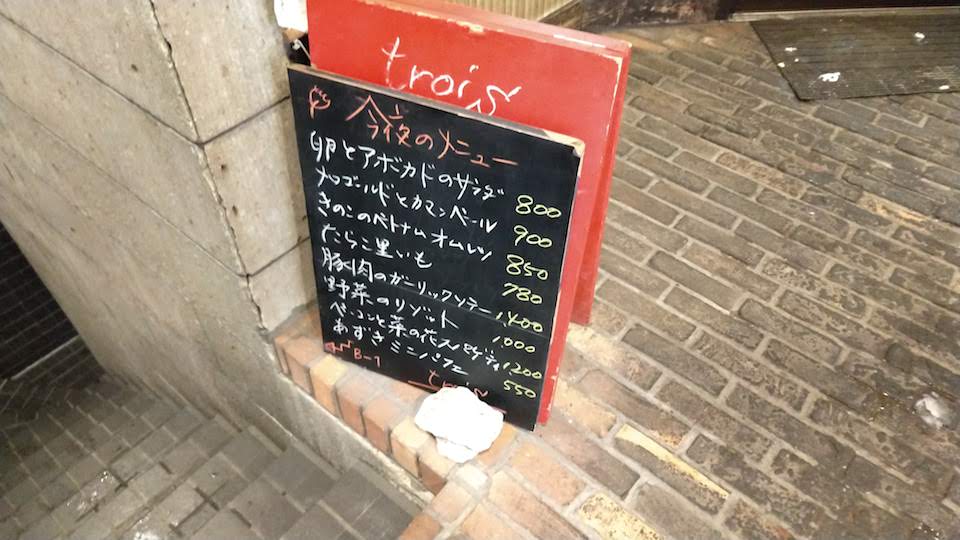 trois
今夜のメニュー
卵とアボカドのサラダ 800
メロゴールドとカマンベール 900
きのこのベトナムオムレツ 850
たらこ里いも 780
豚肉のガーリックソテー 1,400
野菜のリゾット 1,000
ベーコンと菜の花スパゲティ 1,200
あずきミニパフェ 550
B-1
trois